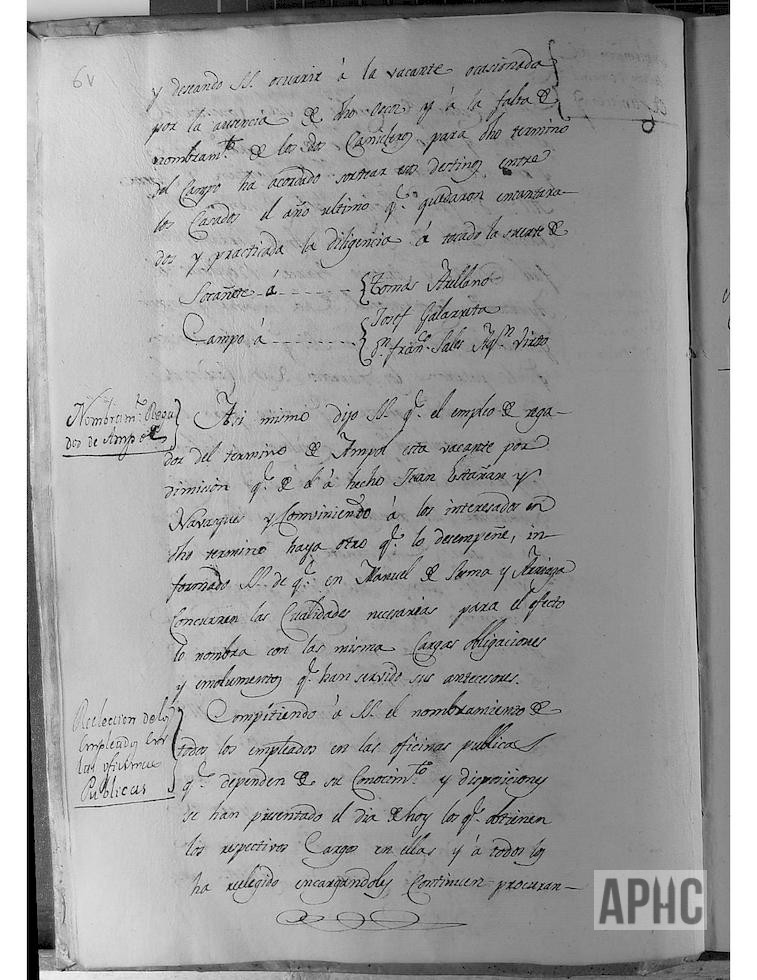 6v
y deseando SS. ocurrir á la vacante ocasionada
por la ausencia de dho Cocz y á la falta de
nombram.to de los dos Camilleros para dho termino
del Campo ha acordado sortear esos destinos entre
los Casados el año ultimo q.e quedaron encantara-
dos y practicada la diligencia á tocado la suerte de
Sorañete á - - - - - - - Tomas Arellano
Campo á - - - - - - - Josef Galarreta
D.n Fran.co Sales Ag.n Virto
Nombram.to Rega
dor de Ampol
Asi mismo dijo SS. q.e el empleo de rega-
dor del termino de Ampol esta vacante por
dimicion q.e de el á hecho Juan Estañan y
Navasques y Conviniendo á los interesados en
dho termino haya otro q.e lo desempeñe, in-
formado SS. de q.e en Manuel de Serma y Arriaga
Concurren las Cualidades necesarias para el efecto
lo nombra con las misma Cargas obligaciones
y emolumentos q.e han servido sus antecesores.
Reeleccion de los
Empleados en
las oficinas
Publicas
Compitiendo á SS. el nombramiento de
todos los empleados en las oficinas publicas
q.e dependen de su Conocim.to y disposiciones
se han presentado el dia de hoy los q.e obtienen
los respectivos Cargos en ellas y á todos los
ha reelegido encargandoles Continuen procuran-
APHC